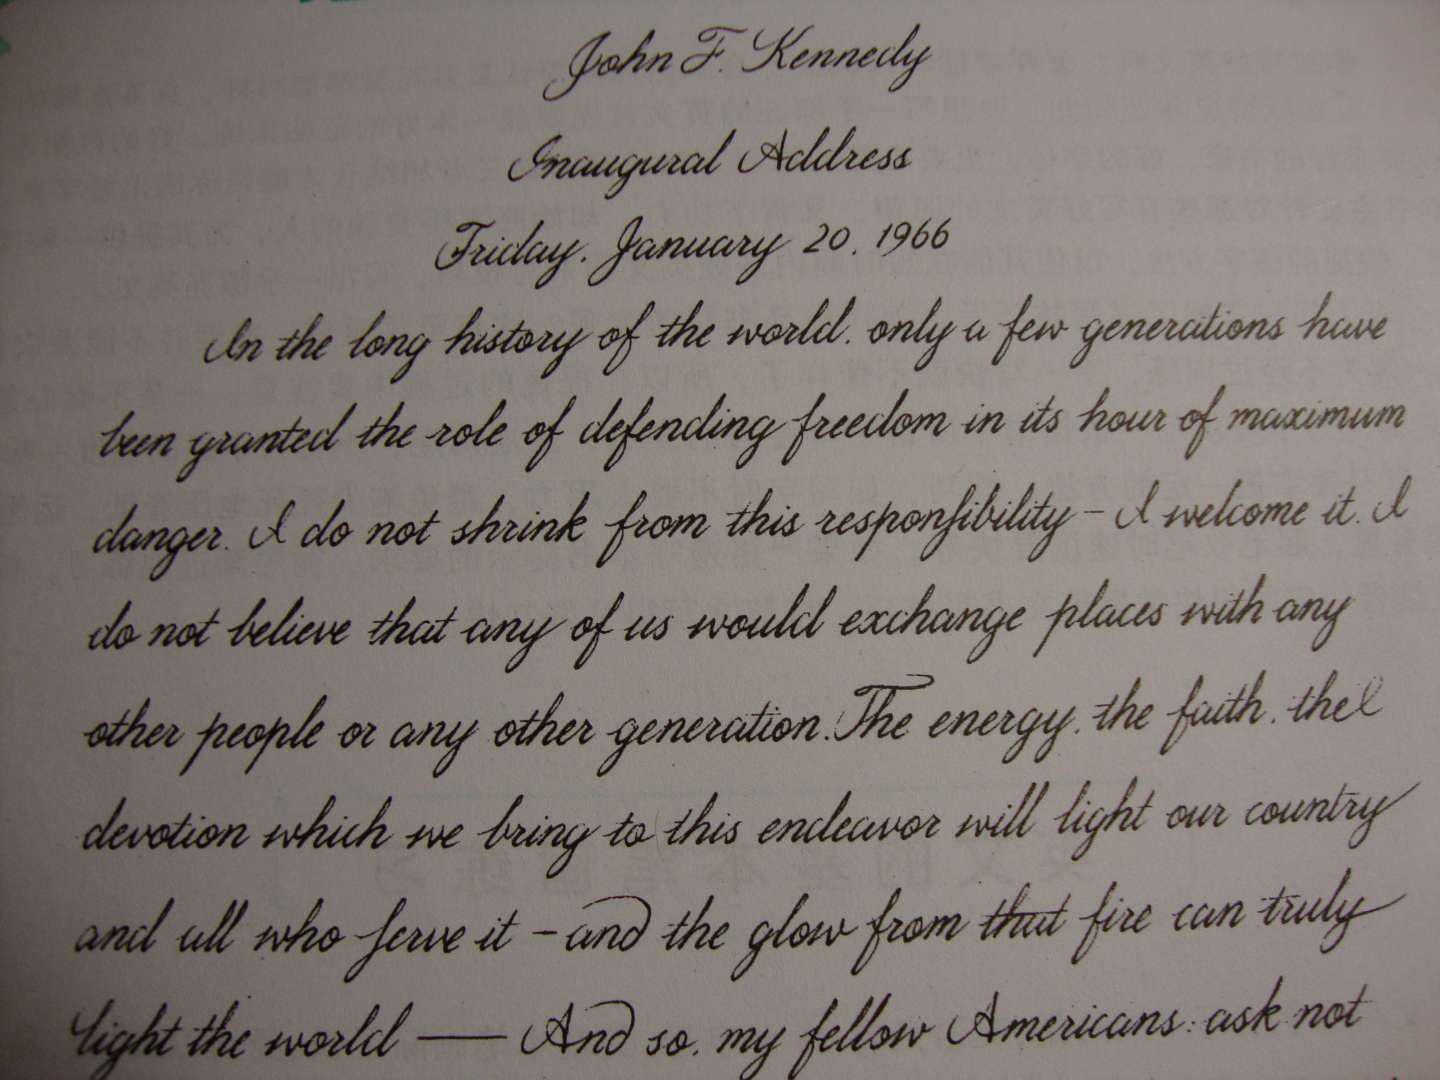 John F. Kennedy
Inaugural Address
Friday. January 20. 1966
In the long history of the world. only a few generations have
been granted the role of defending freedom in its hour of maximum
danger. I do not shrink from this responsibility - I welcome it. I
do not believe that any of us would exchange places with any
other people or any other generation. The energy. the faith. the
devotion which we bring to this endeavor will light our country
and all who serve it - and the glow from that fire can truly
light the world — And so. my fellow Americans: ask not